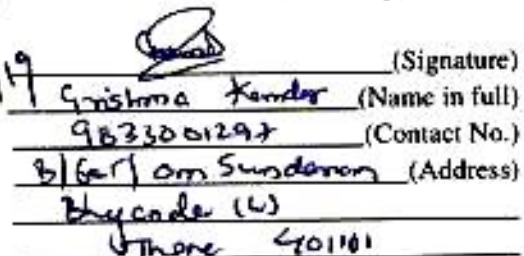 19 (Signature)
Grishma Kemder (Name in full)
9833001297 (Contact No.)
om Sundaram (Address)
(W)
Thane 401101